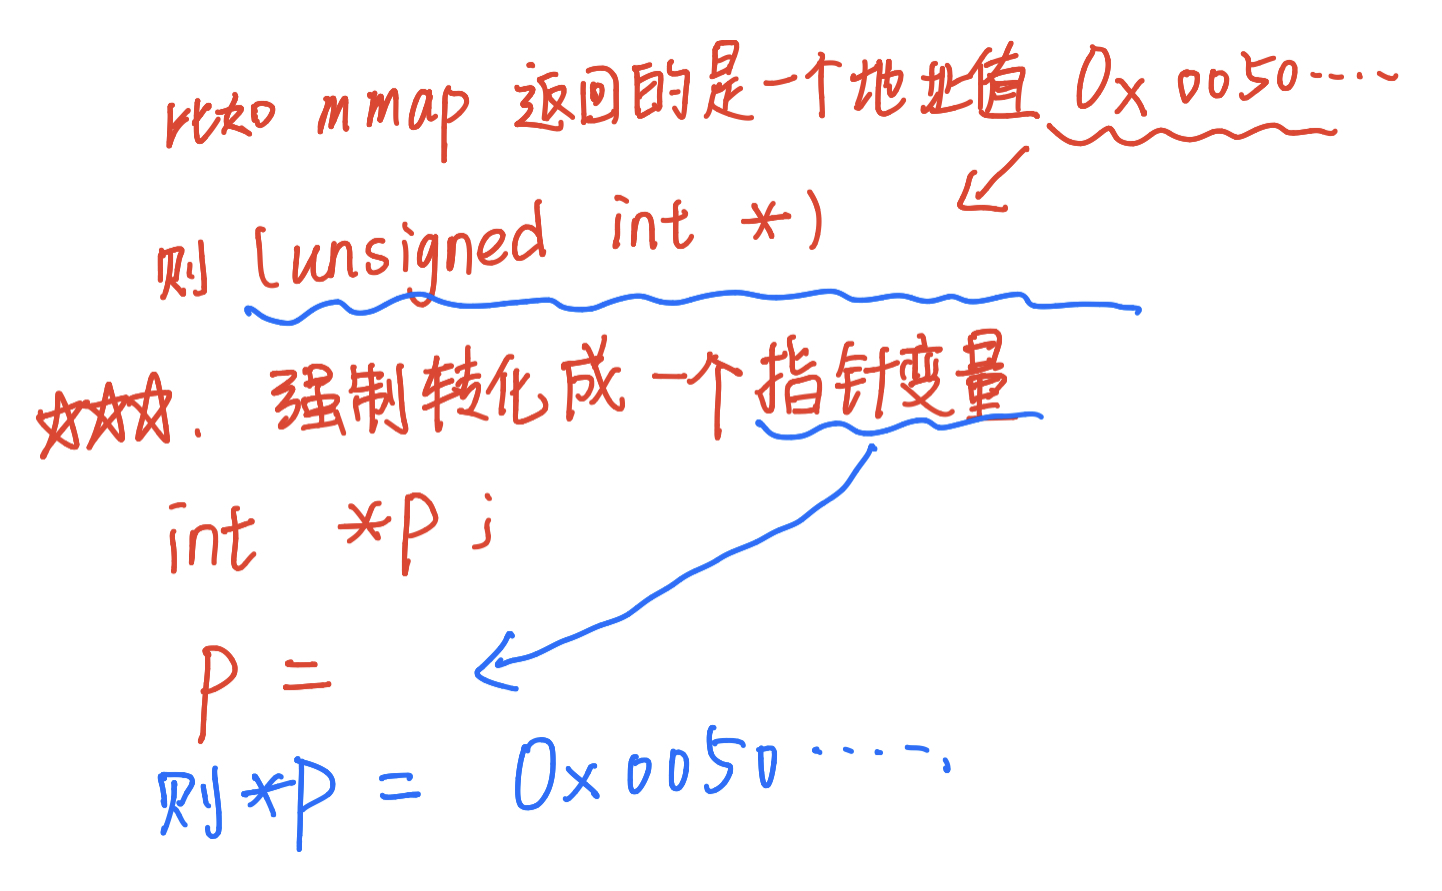 比如 mmap 返回的是一个地址值 0x 0050·····
则 (unsigned int *)
☆☆☆. 强制转化成一个指针变量
int *p ;
p =
则*p = 0x0050 ······